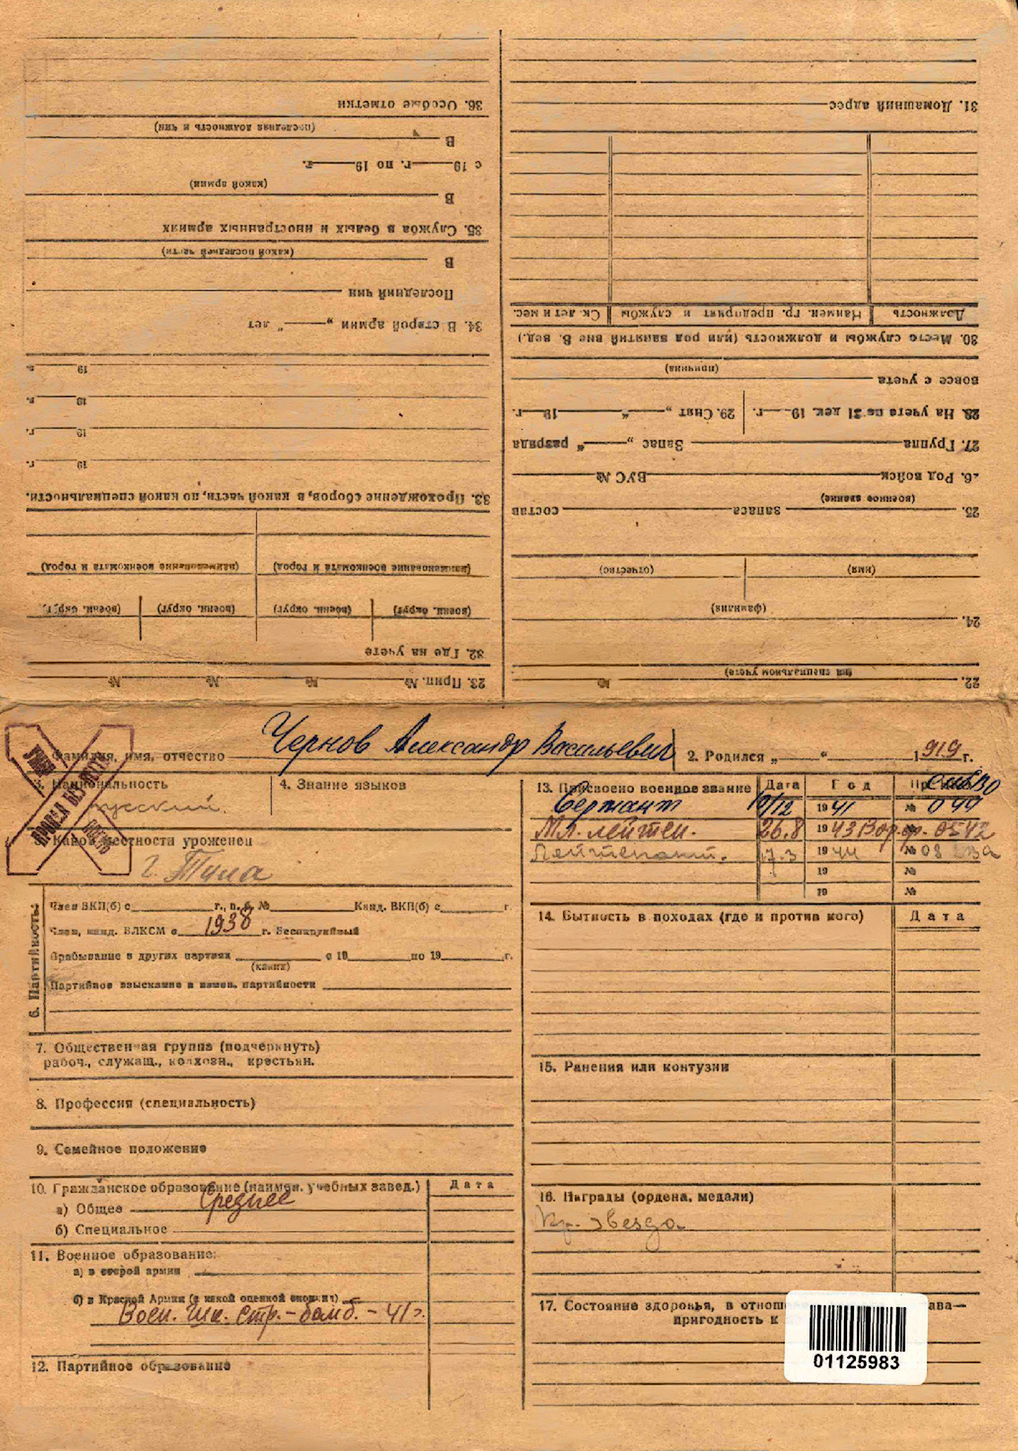 Чернов Александр Васильевич
Фамилия, имя, отчество
2. Родился „ “ 1919 г.
3. Национальность
русский
4. Знание языков
5. Какой местности уроженец
г. Тула
6. Партийность:
Член ВКП(б) с г., п. б. № Канд. ВКП(б) с г.
Член, канд. ВЛКСМ с 1938 г. Беспартийный
Пребывание в других партиях с 19 по 19 г.
(каких)
Партийное взыскание и измен. партийности
7. Общественная группа (подчеркнуть)
рабоч., служащ., колхозн., крестьян.
8. Профессия (специальность)
9. Семейное положение
10. Гражданское образование (наимен. учебных завед.) Дата
а) Общее Среднее
б) Специальное
11. Военное образование:
а) в старой армии
б) в Красной Армии (с какой оценкой окончил)
Воен. шк. стр.-бомб. - 41 г.
12. Партийное образование
13. Присвоено военное звание Дата Год
Сержант 19/12 1941 № 044
Мл. лейтен. 26.8 1943 № 0542
Лейтенант. 7.3 1944 № 08
19 №
19 №
14. Бытность в походах (где и против кого) Дата
15. Ранения или контузии
16. Награды (ордена, медали)
Кр. звезда
17. Состояние здоровья, в
пригодность к
01125983
22.
(на специальном учете) №
23. Прип. № № № №
24.
(фамилия)
(имя) (отчество)
25. запаса состав
(военное звание)
26. Род войск ВУС №
27. Группа Запас „ “ разряда
28. На учете по 31 дек. 19 г. 29. Снят „ “ 19 г.
вовсе с учета
(причина)
30. Место службы и должность (или род занятий вне В. вед.)
Должность Наимен. гр. предприят и службы Ск. лет и мес.
31. Домашний адрес
32. Где на учете
(воен. округ) (воен. округ) (воен. округ) (воен. округ)
(наименование военкомата и город) (наименование военкомата и город)
33. Прохождение сборов, в какой части, по какой специальности.
19 г.
19 г.
19 г.
19 г.
34. В старой армии „ “ лет
Последний чин
В
(какой последней части)
35. Служба в белых и иностранных армиях
В
(какой армии)
с 19 г. по 19 г.
В
(последняя должность и чин)
36. Особые отметки